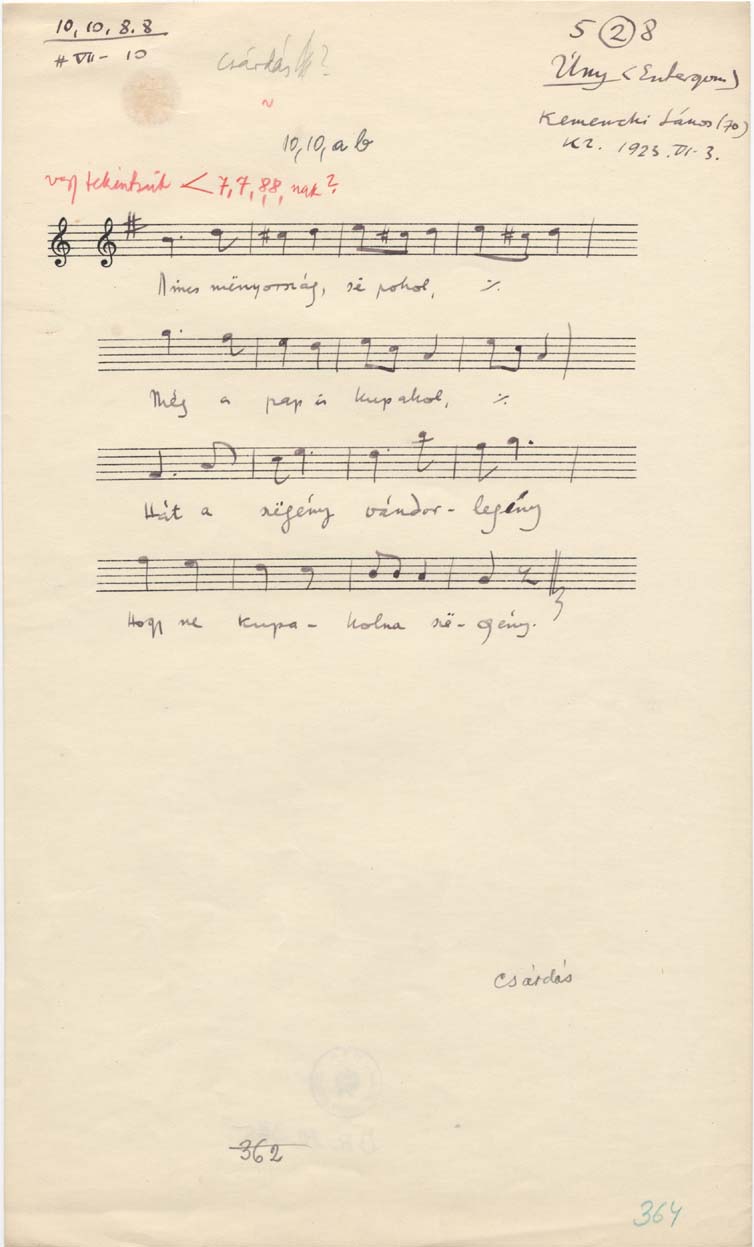 10, 10, 8. 8
# VII - 10
Csárdás ?
5 ② 8
Úny (Esztergom)
Kemencki János (70)
Kz. 1923. VI. 3.
10, 10, a b
vagy tekintsük < 7, 7, 88, nak?
Nincs mënyország, së pokol, ./.
Még a pap is kupakol, ./.
Hát a szëgény vándor- legény
Hogy ne kupa- kolna szë- gény.
Csárdás
362
364